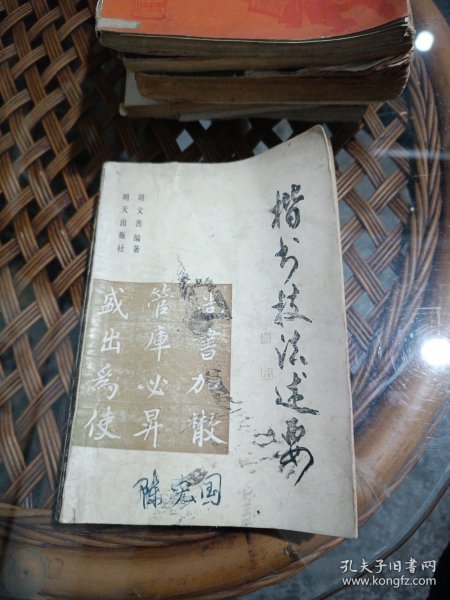 楷书技法述要
文善 编著
明天出版社
尚書加散
管庫必昇
盛出爲使
陈宏国
孔夫子旧书网
www.kongfz.com